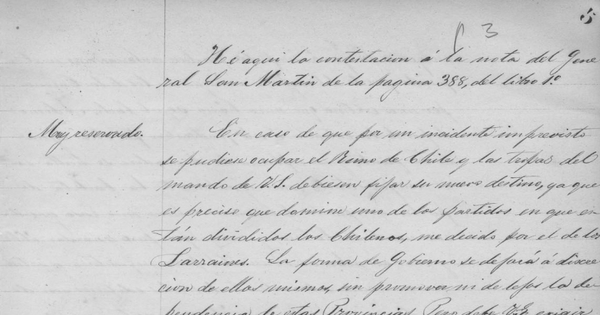 3
5
Hé aqui la contestacion á la nota del Gene
ral San Martin de la pagina 388, del libro 1º
Muy reservado.
En caso de que por un incidente imprevisto
se pudiese ocupar el Reino de Chile y las tropas del
mando de V.S. debiesen fijar su nuevo destino, ya que
es preciso que domine uno de los partidos en que es
tán divididos los Chilenos, me decido por el de los
Larraines. La forma de Gobierno se dejará á discre
cion de ellos mismos, sin promover ni de lejos la de
pendencia de estas Provincias. Pero debe V.E. exigir